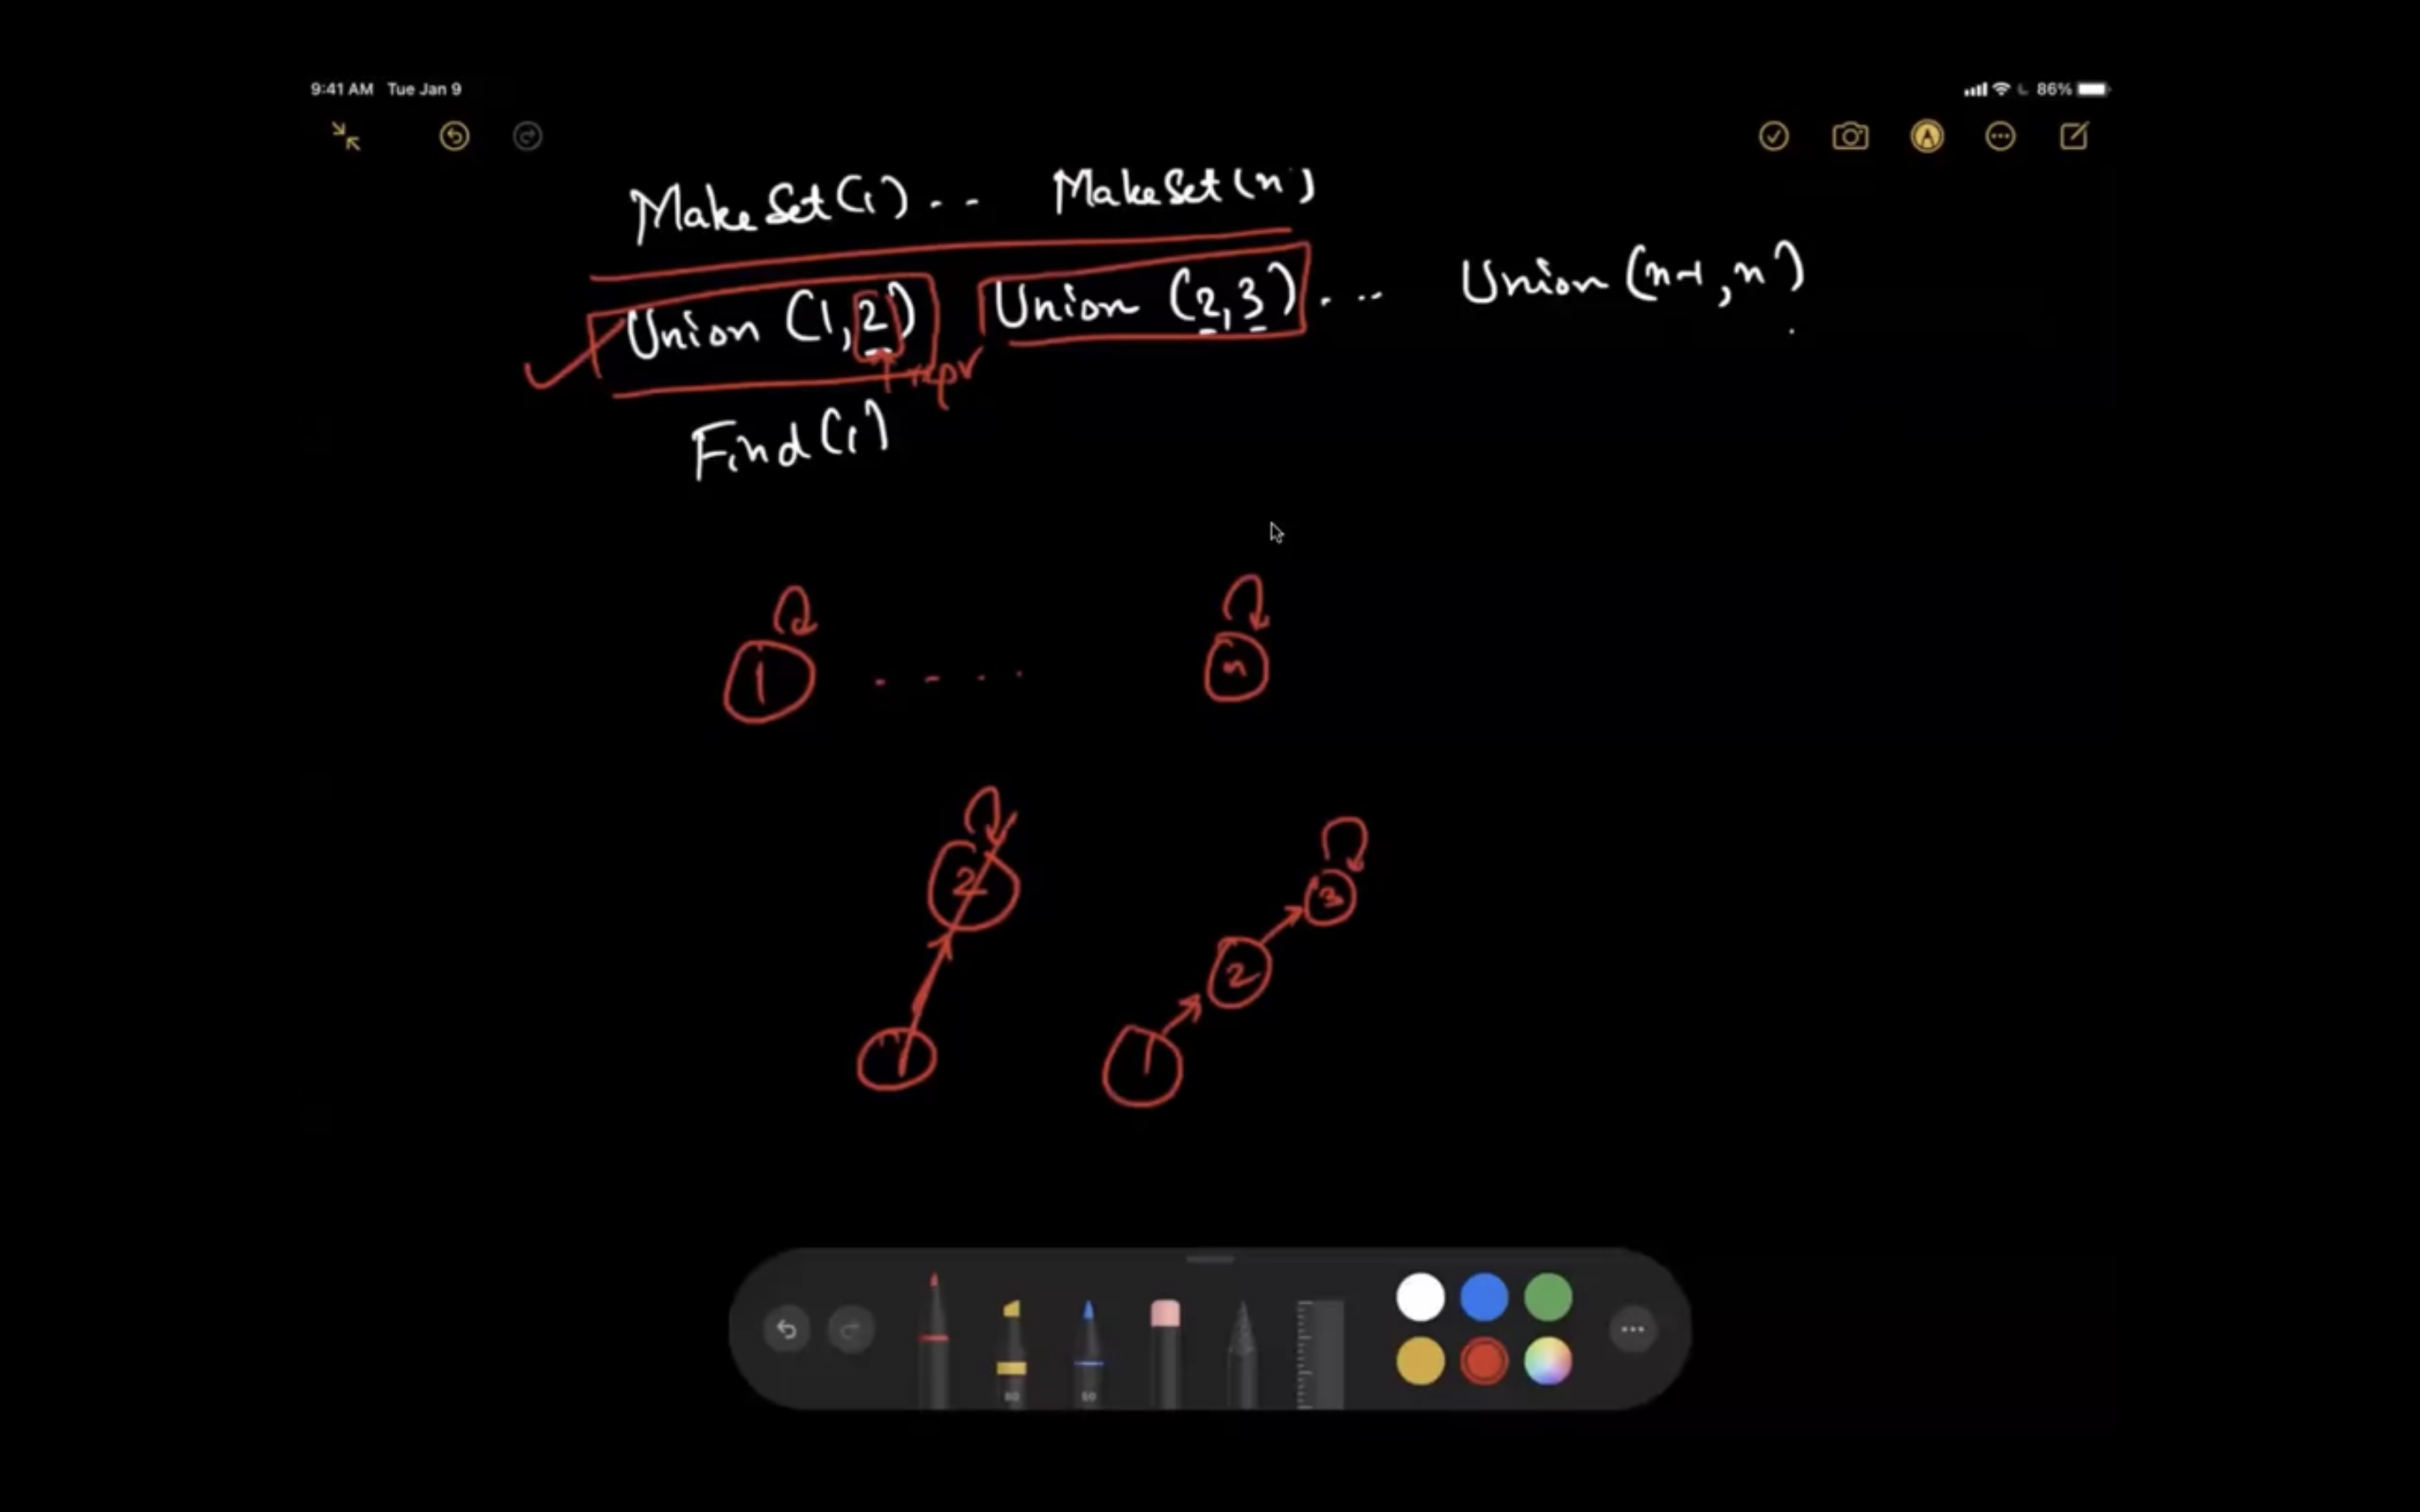 9:41 AM Tue Jan 9 86%
MakeSet(1) . . MakeSet(n)
Union (1,2) Union (2,3) . . . Union (n-1,n)
repr
Find(1)
1 . . . . n
2 3
2
1 1
80 50